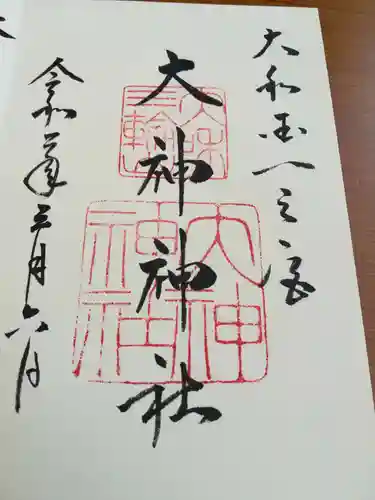 大和国一之宮
大神神社
大神
神社
令和二年三月六日